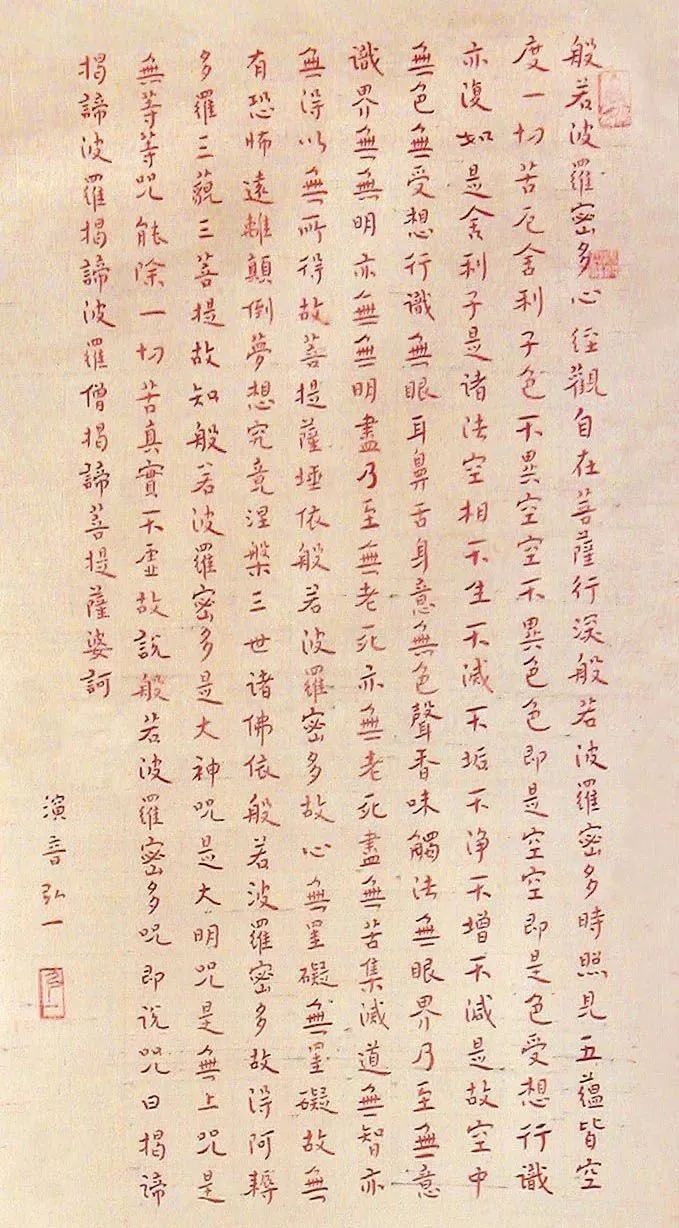 般若波羅密多心経觀自在菩薩行深般若波羅密多時照見五蘊皆空
度一切苦厄舍利子色不異空空不異色色即是空空即是色受想行識
亦復如是舍利子是诸法空相不生不滅不垢不净不增不減是故空中
無色無受想行識無眼耳鼻舌身意無色聲香味觸法無眼界乃至無意
識界無無明亦無無明盡乃至無老死亦無老死盡無苦集滅道無智亦
無得以無所得故菩提薩埵依般若波羅密多故心無罣礙無罣礙故無
有恐怖遠離顛倒夢想究竟涅槃三世诸佛依般若波羅密多故得阿耨
多羅三藐三菩提故知般若波羅密多是大神咒是大明咒是無上咒是
無等等咒能除一切苦真實不虛故說般若波羅密多咒即说咒曰揭諦
揭諦波羅揭諦波羅僧揭諦菩提薩婆訶
演音弘一